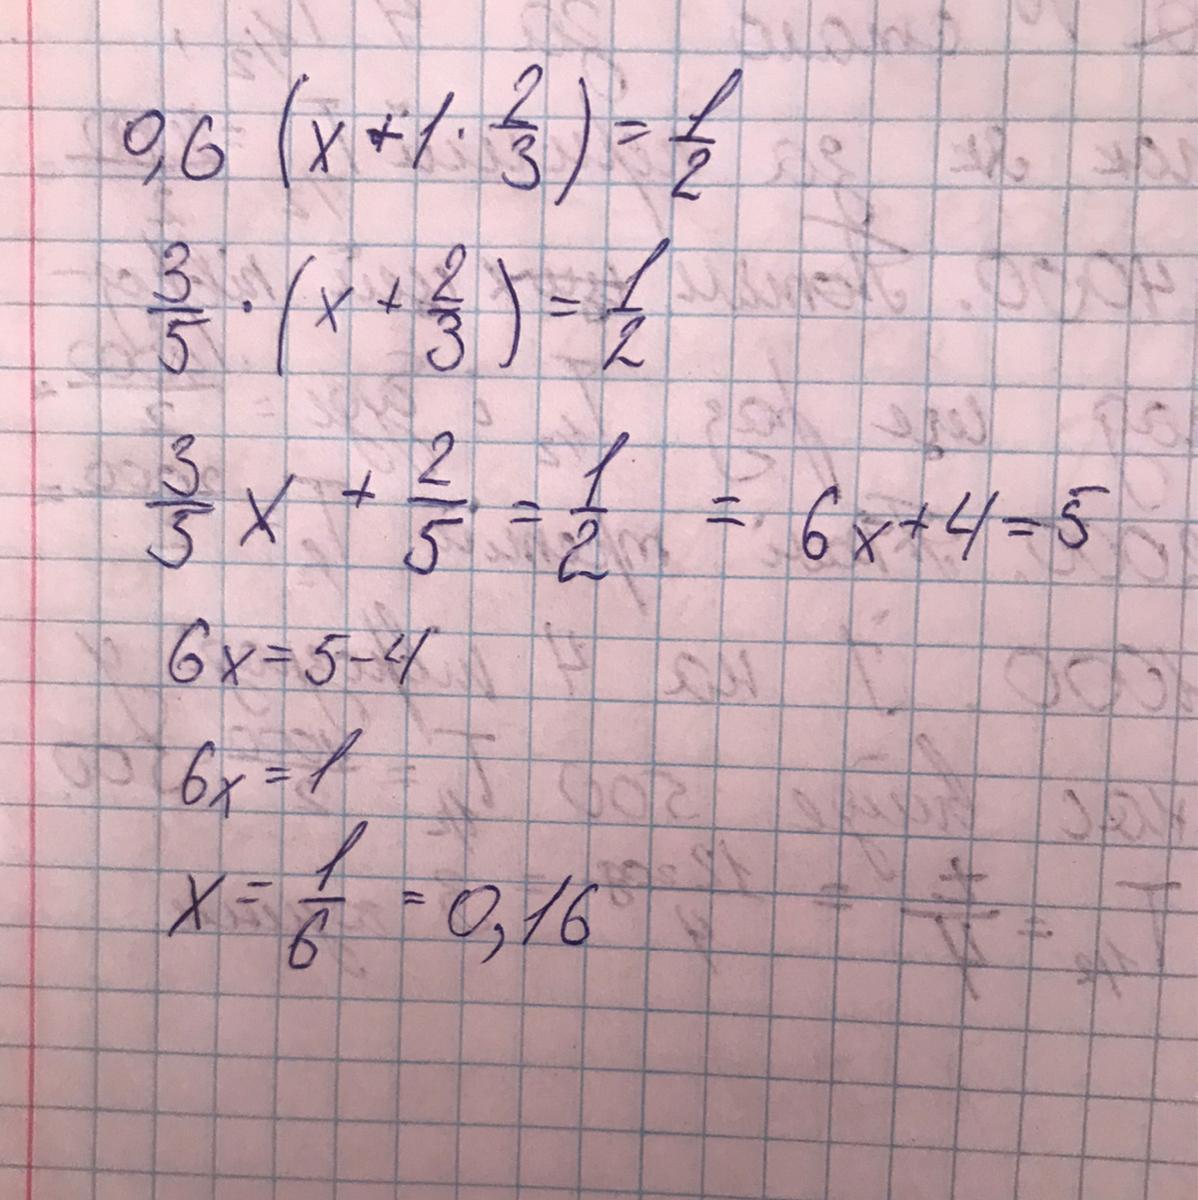 0,6 (x + 1 · 2/3) = 1/2
3/5 · (x + 2/3) = 1/2
3/5 x + 2/5 = 1/2 = 6x + 4 = 5
6x = 5 - 4
6x = 1
x = 1/6 = 0,16